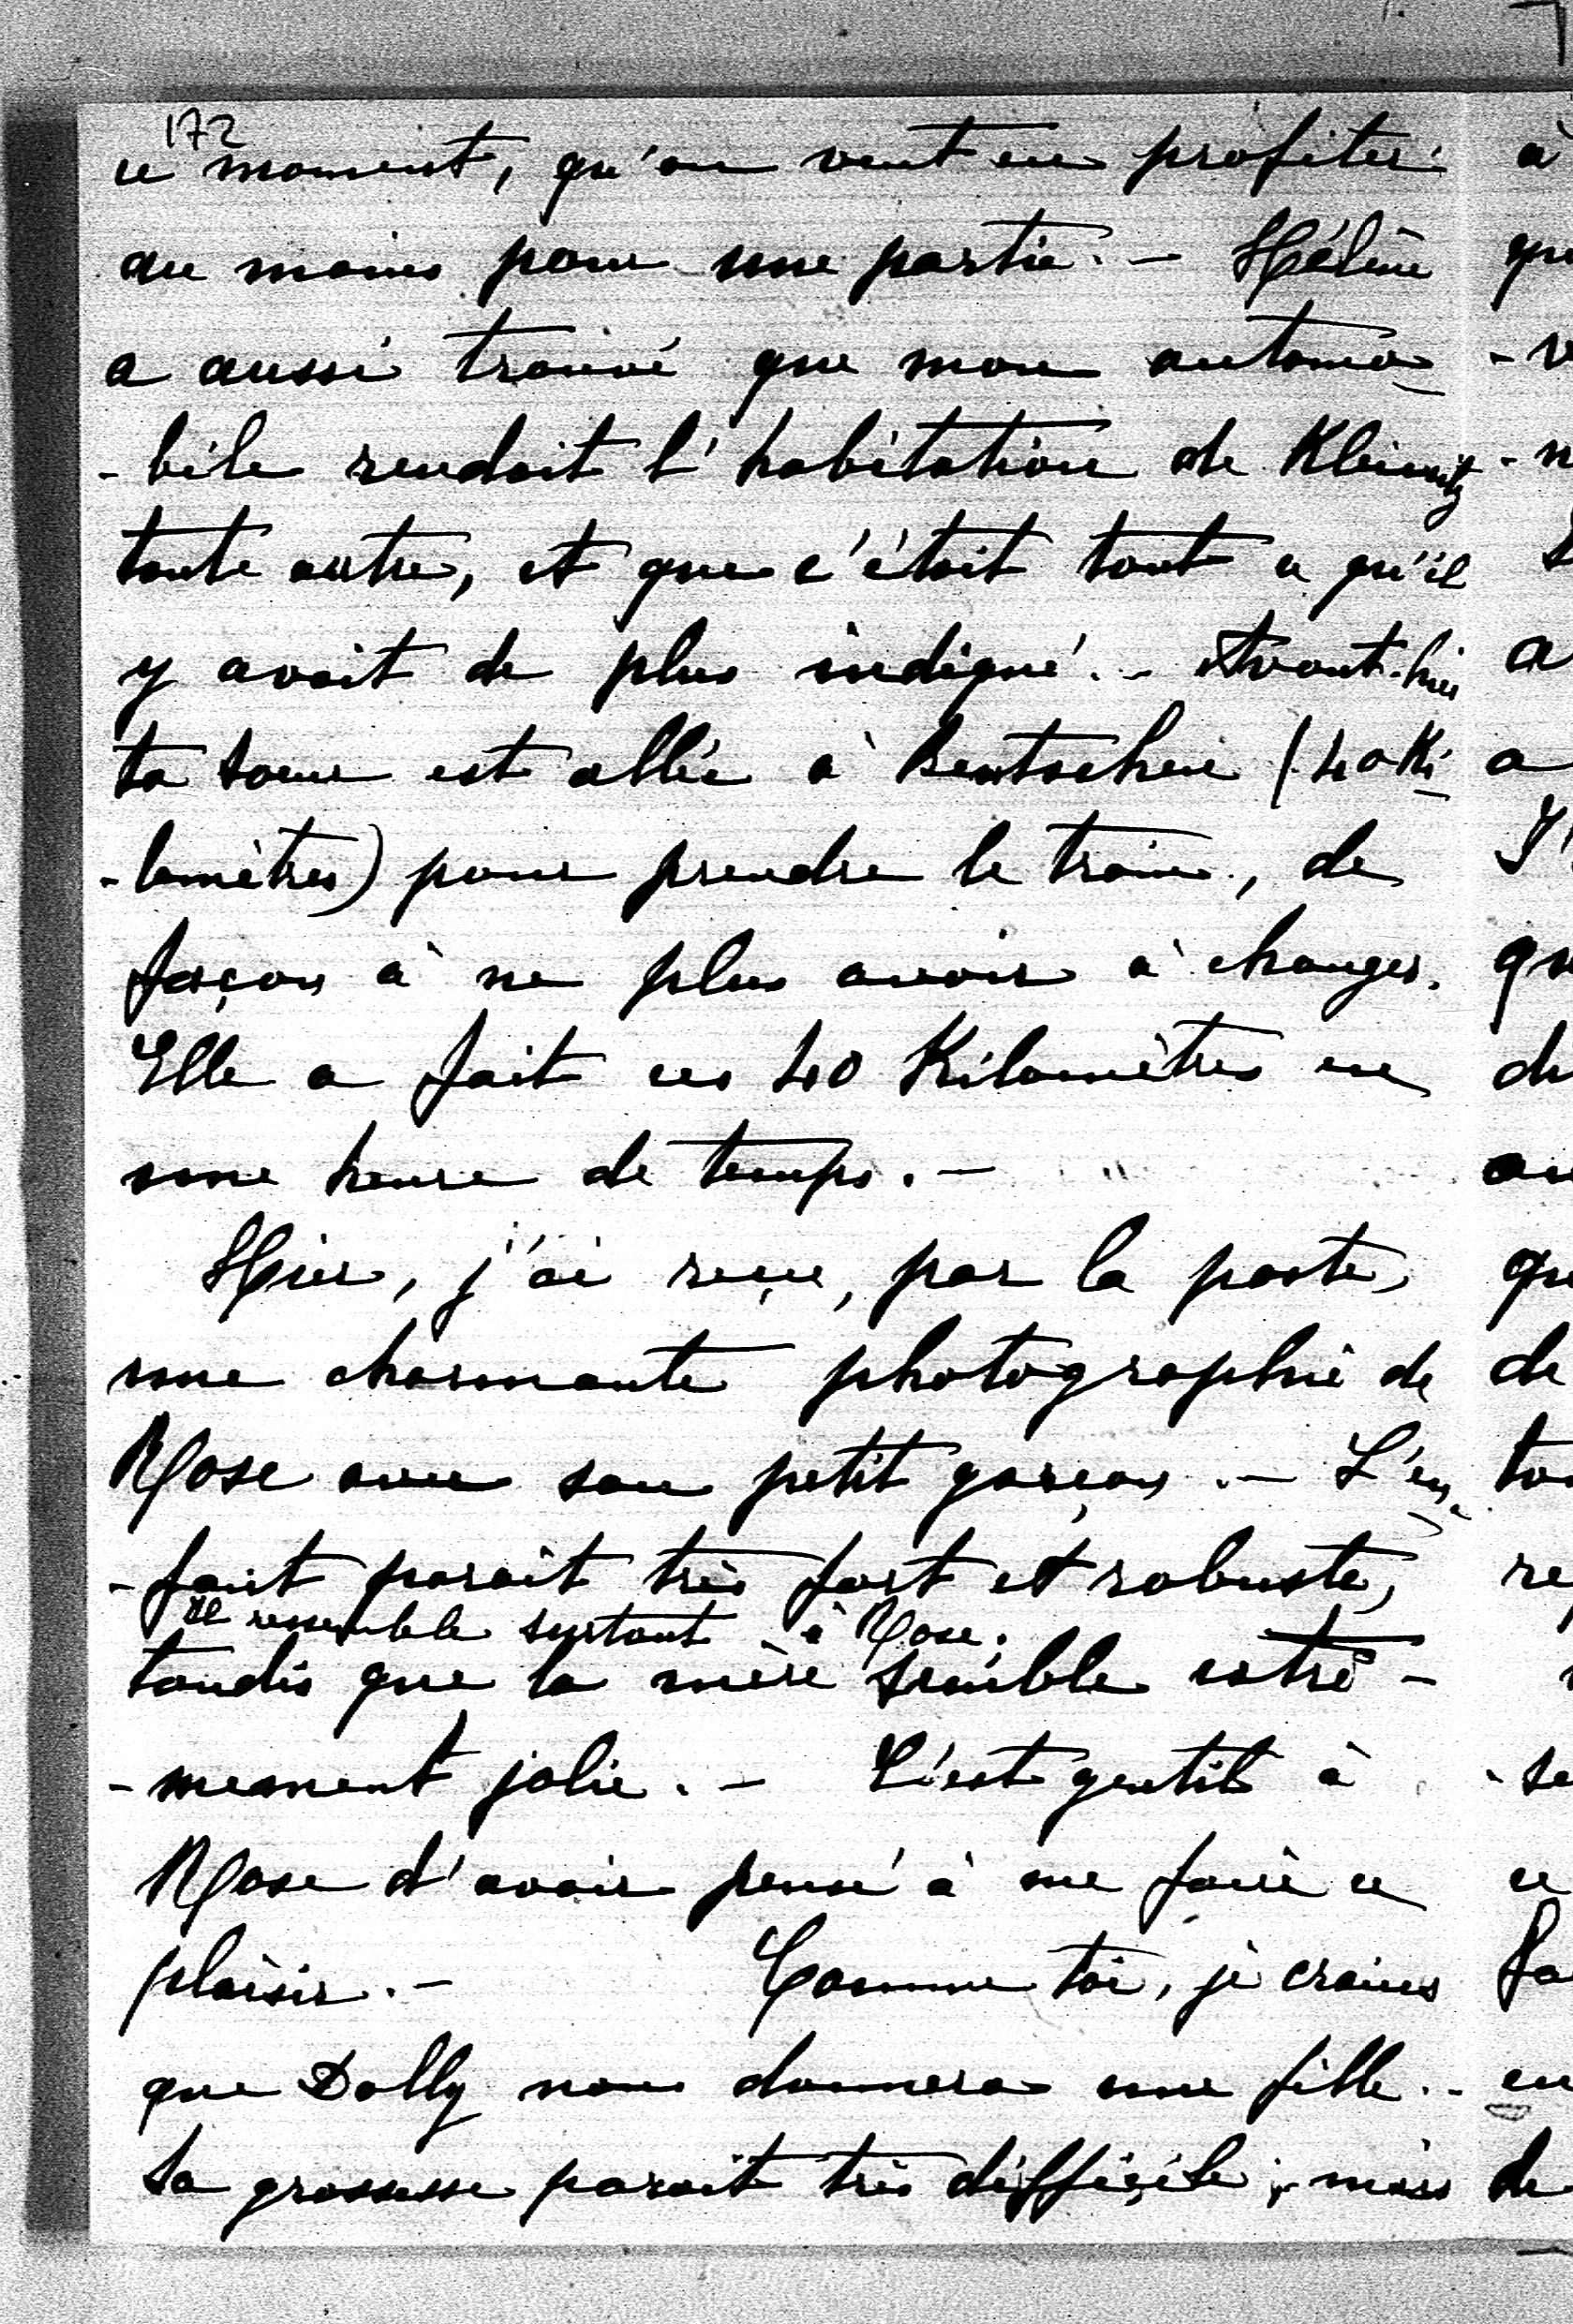 172
ce moment, qu'on veut en profiter
au moins pour une partie. — Hélène
a aussi trouvé que mon automo
-bile rendait l'habitation de Kleinitz
toute autre, et que c'était tout ce qu'il
y avait de plus indiqué. - Avant-hier
ta sœur est allée à Bentschen (40 Ki
-lomètres) pour prendre le train, de
façon à ne plus avoir à changer.
Elle a fait ces 40 Kilomètres en
une heure de temps. —
Hier, j'ai reçu, par la poste,
une charmante photographie de
Rose avec son petit garçon. — L'en
-fant parait très fort et robuste,
Il ressemble surtout à Rose.
tandis que la mère semble extrê-
-mement jolie. — C'est gentil à
Rose d'avoir pensé à me faire ce
plaisir. — Comme toi, je crains
que Dolly nous donnera une fille. -
Sa grossesse parait très difficile ; mais